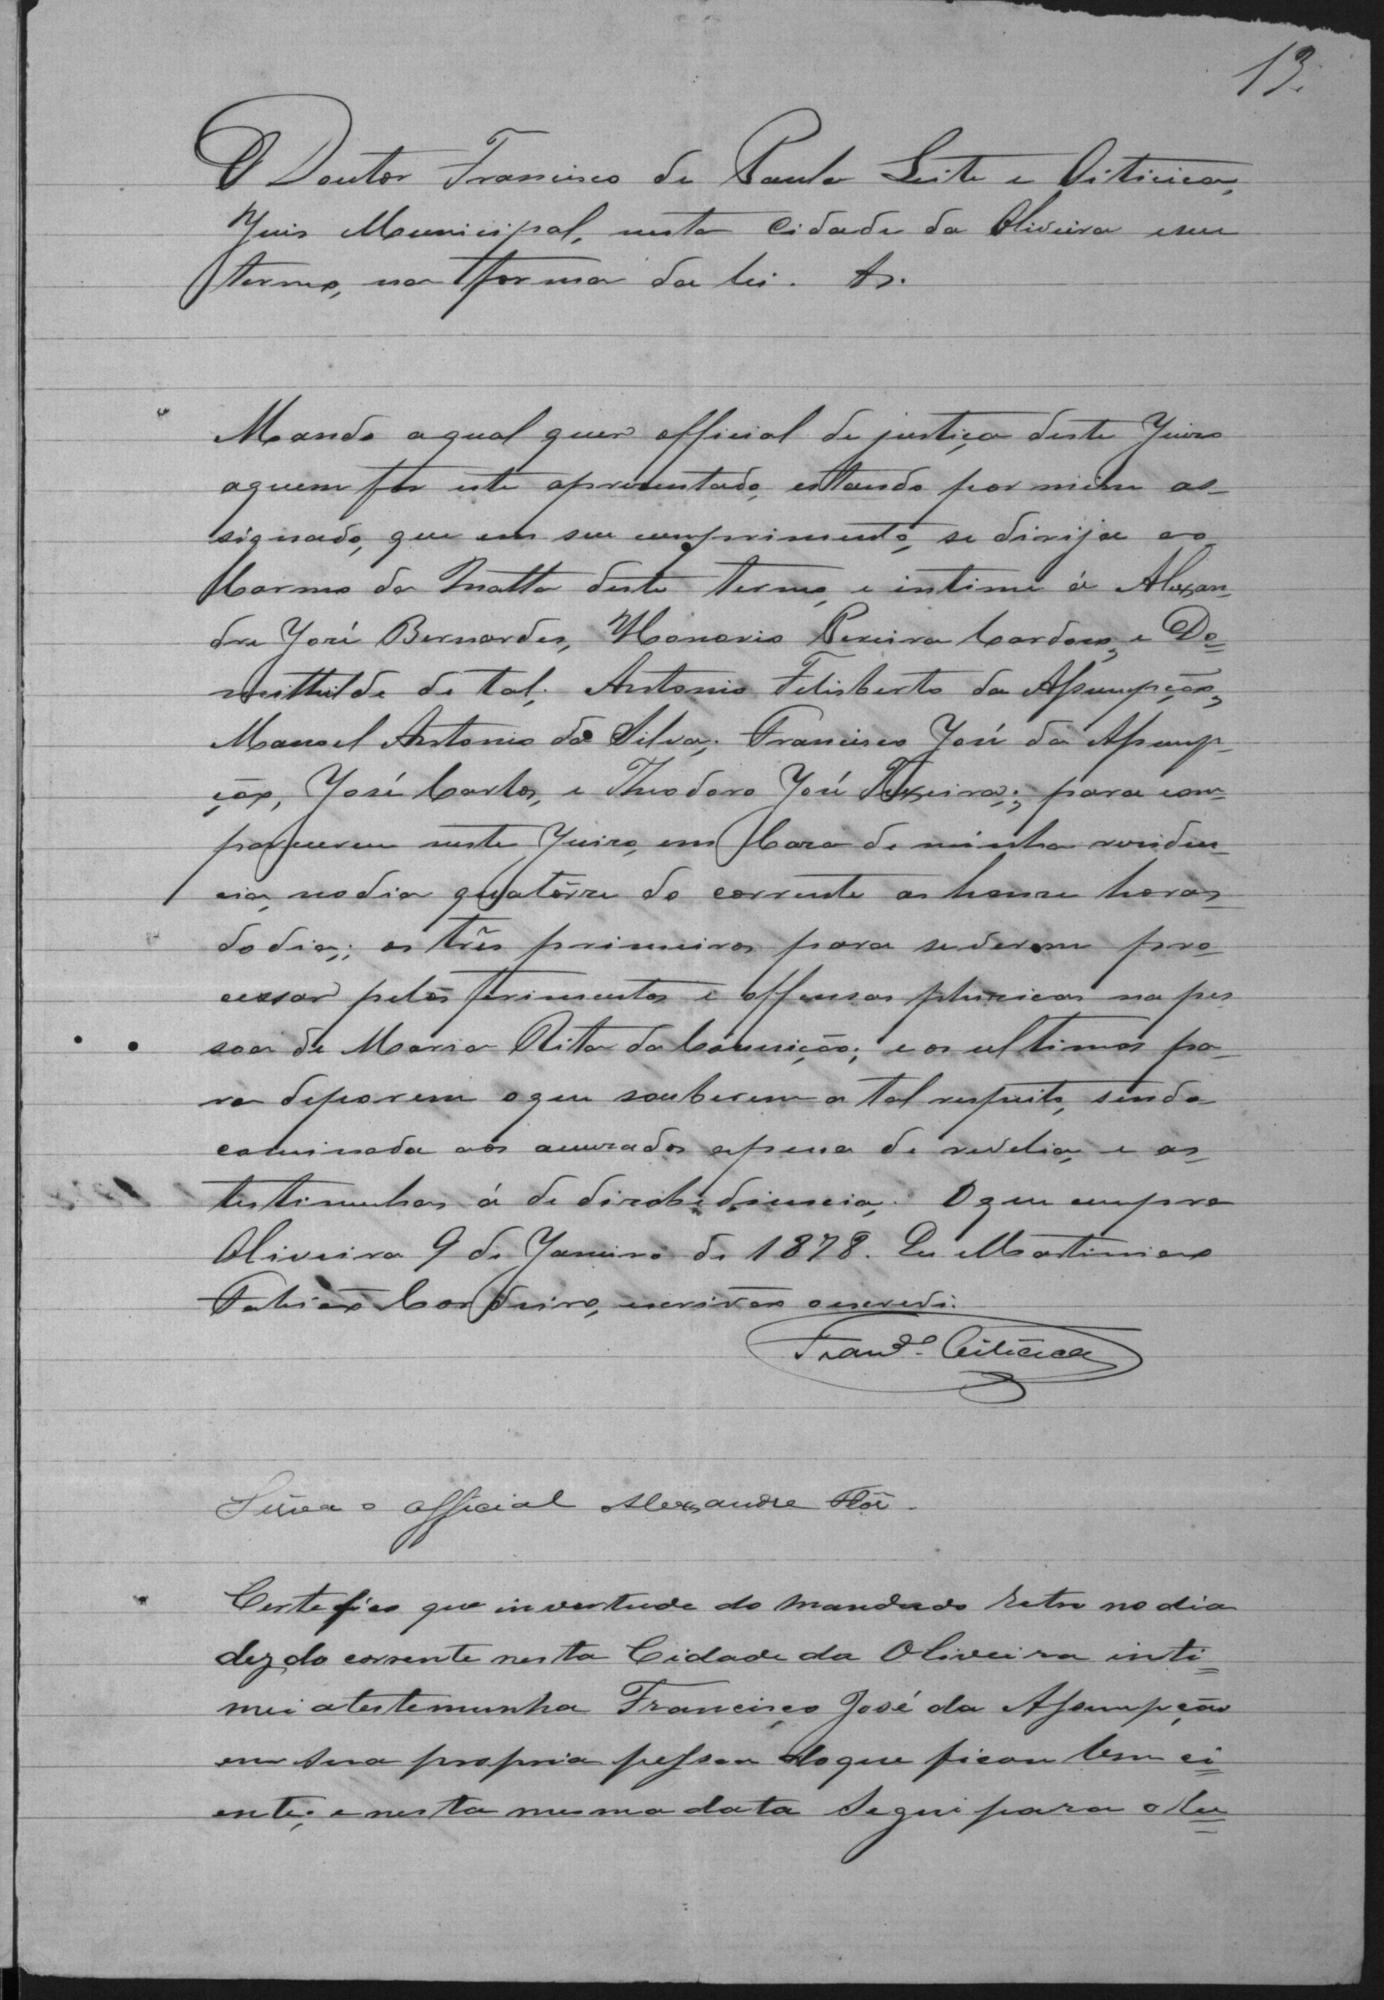 13.
O Doutor Francisco de Paula Leite e Oiticica,
Juis Municipal, nesta Cidade da Oliveira e seu
termo, na forma da lei. &.
Mando a qual quer official de justiça deste Juiso
aquem for este apresentado, estando por mim as-
signado, que em seu cumprimento, se dirija ao
Carmo da Matta deste termo, e intime á Alexan-
dre José Bernardes, Honorio Pereira Cardoso, e Do-
mithilde de tal; Antonio Felisberto da Assumpção,
Manoel Antonio da Silva; Francisco José da Assump-
ção, José Carlos, e Theodoro José Teixeira; para com-
parecerem neste Juizo, em Caza de minha residen-
cia, no dia quatorze do corrente as honze horas
do dia; os três primeiros para se verem pro-
cessar pelos ferimentos e offensas phizicas na pes
soa de Maria Rita da Conceição; e os ultimos pa-
ra deporem o que souberem a tal respeito, sendo
cominada aos accuzados apena de revelia, e as
testimunhas á de dizobediencia. O que cumpra
Oliveira 9 de Janeiro de 1878. Eu Martiniano
Fabião Cordeiro, escrivão o escrevi.
Franco. Oiticica
Sirva o official Alexandre
Certefico que invertude do mandado retro no dia
dez do corrente nesta Cidade da Oliveira inti-
mei atestemunha Francisco José da Assumpção
em sua propria pessoa doque ficou bem ci-
ente; e nesta mesma data segui para o lu-